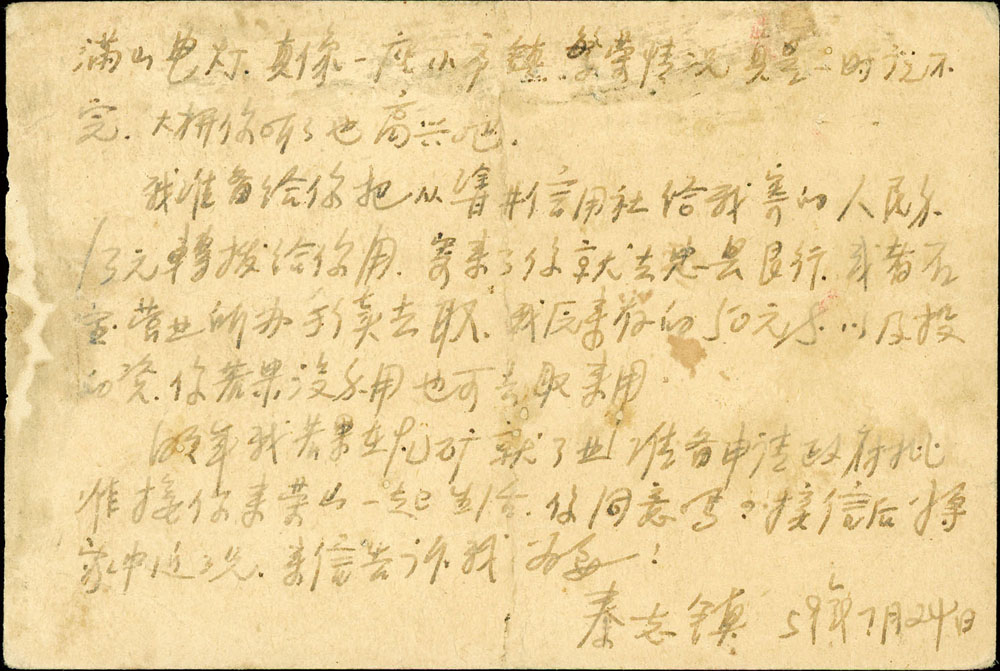 满山电灯、真像一座小市镇、繁荣情况真是一时说不
完、大概你听了也高兴吧、
我准备给你把从 井信用社给我寄的人民币
13元轉拨给你用、寄来了你就去 县民行、或者石
营业所办手续去取、我 的50元 、以及投
的资、你若果没钱用也可去取来用
明年我若果在 矿就了业、准备申请政府批
准接你来荣山一起生活、你同意吗？接信后将
家中近况、来信告诉我为要！
秦志镇 59年7月24日